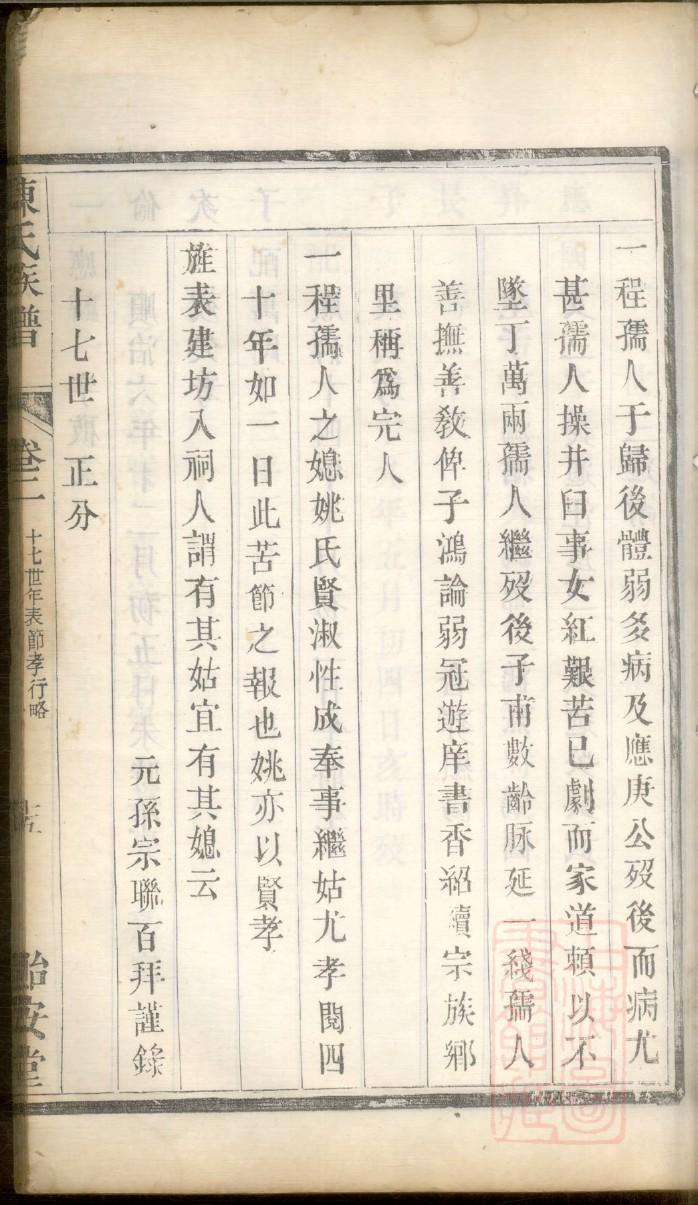 一程孺人于歸後體弱多病及應庚公歿後而病尤
甚孺人操井臼事女紅艱苦已劇而家道賴以不
墜丁萬兩孺人繼歿後子甫數齡脉延一綫孺人
善撫善敎俾子鴻論弱冠遊庠書香紹續宗族鄉
里稱爲完人
一程孺人之媳姚氏賢淑性成奉事繼姑尤孝閱四
十年如一日此苦節之報也姚亦以賢孝
旌表建坊入祠人謂有其姑宜有其媳云
元孫宗聯百拜謹錄
十七世正分
陳氏族譜
卷二
十七世年表節孝行略
怡安堂